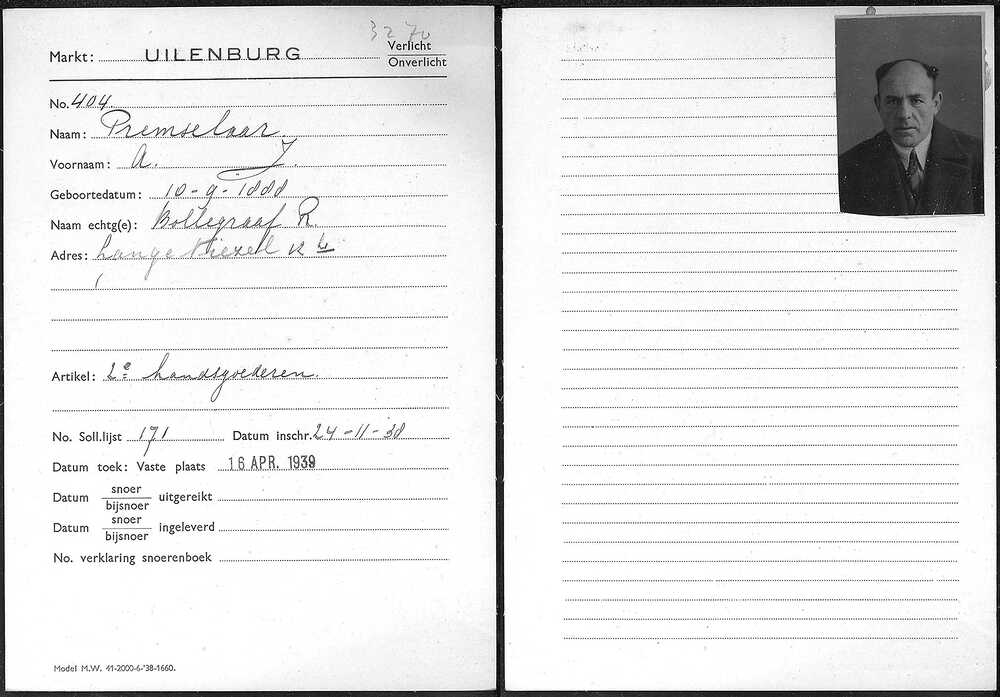 3270
Markt: UILENBURG Verlicht
Onverlicht
No. 404
Naam: Premselaar
Voornaam: A. J.
Geboortedatum: 10-9-1888
Naam echtg(e): Bollegraaf R.
Adres: Lange Niezel
Artikel: 2e handsgoederen.
No. Soll.lijst 171 Datum inschr. 24-11-38
Datum toek: Vaste plaats 16 APR. 1939
Datum snoer
bijsnoer uitgereikt
Datum snoer
bijsnoer ingeleverd
No. verklaring snoerenboek
Model M.W. 41-2000-6-'38-1660.